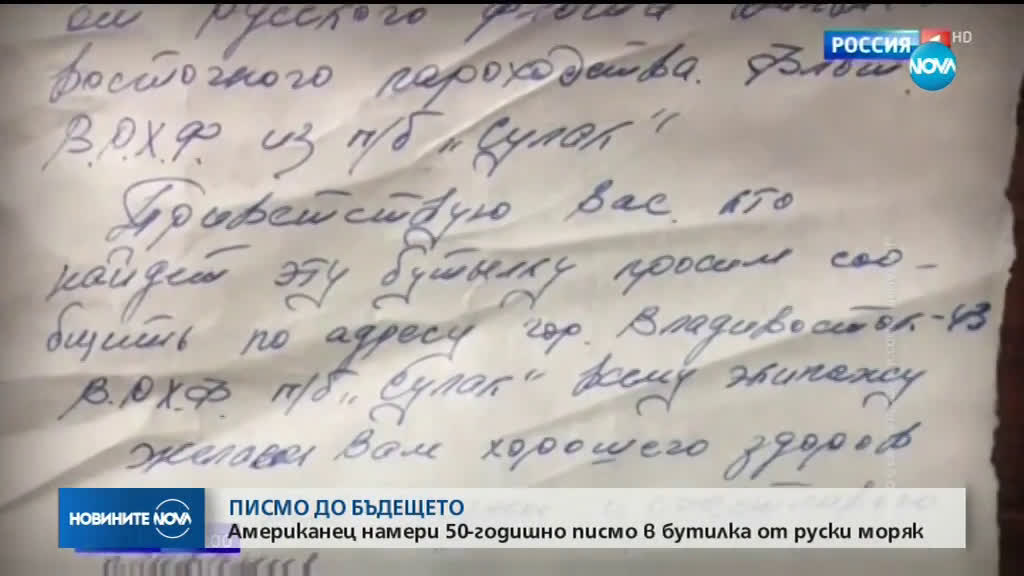 ом русского флота
восточного пароходства.
В.О.Х.Ф. из п/б „Сулак"
Приветствую вас кто
найдет эту бутылку просим соо-
бщить по адресу гор. Владивосток-43
В.О.Х.Ф. п/б „Сулак" всему экипажу
желаем Вам хорошего здоров
РОССИЯ 1 HD
NOVA
НОВИНИТЕ NOVA
ПИСМО ДО БЪДЕЩЕТО
Американец намери 50-годишно писмо в бутилка от руски моряк